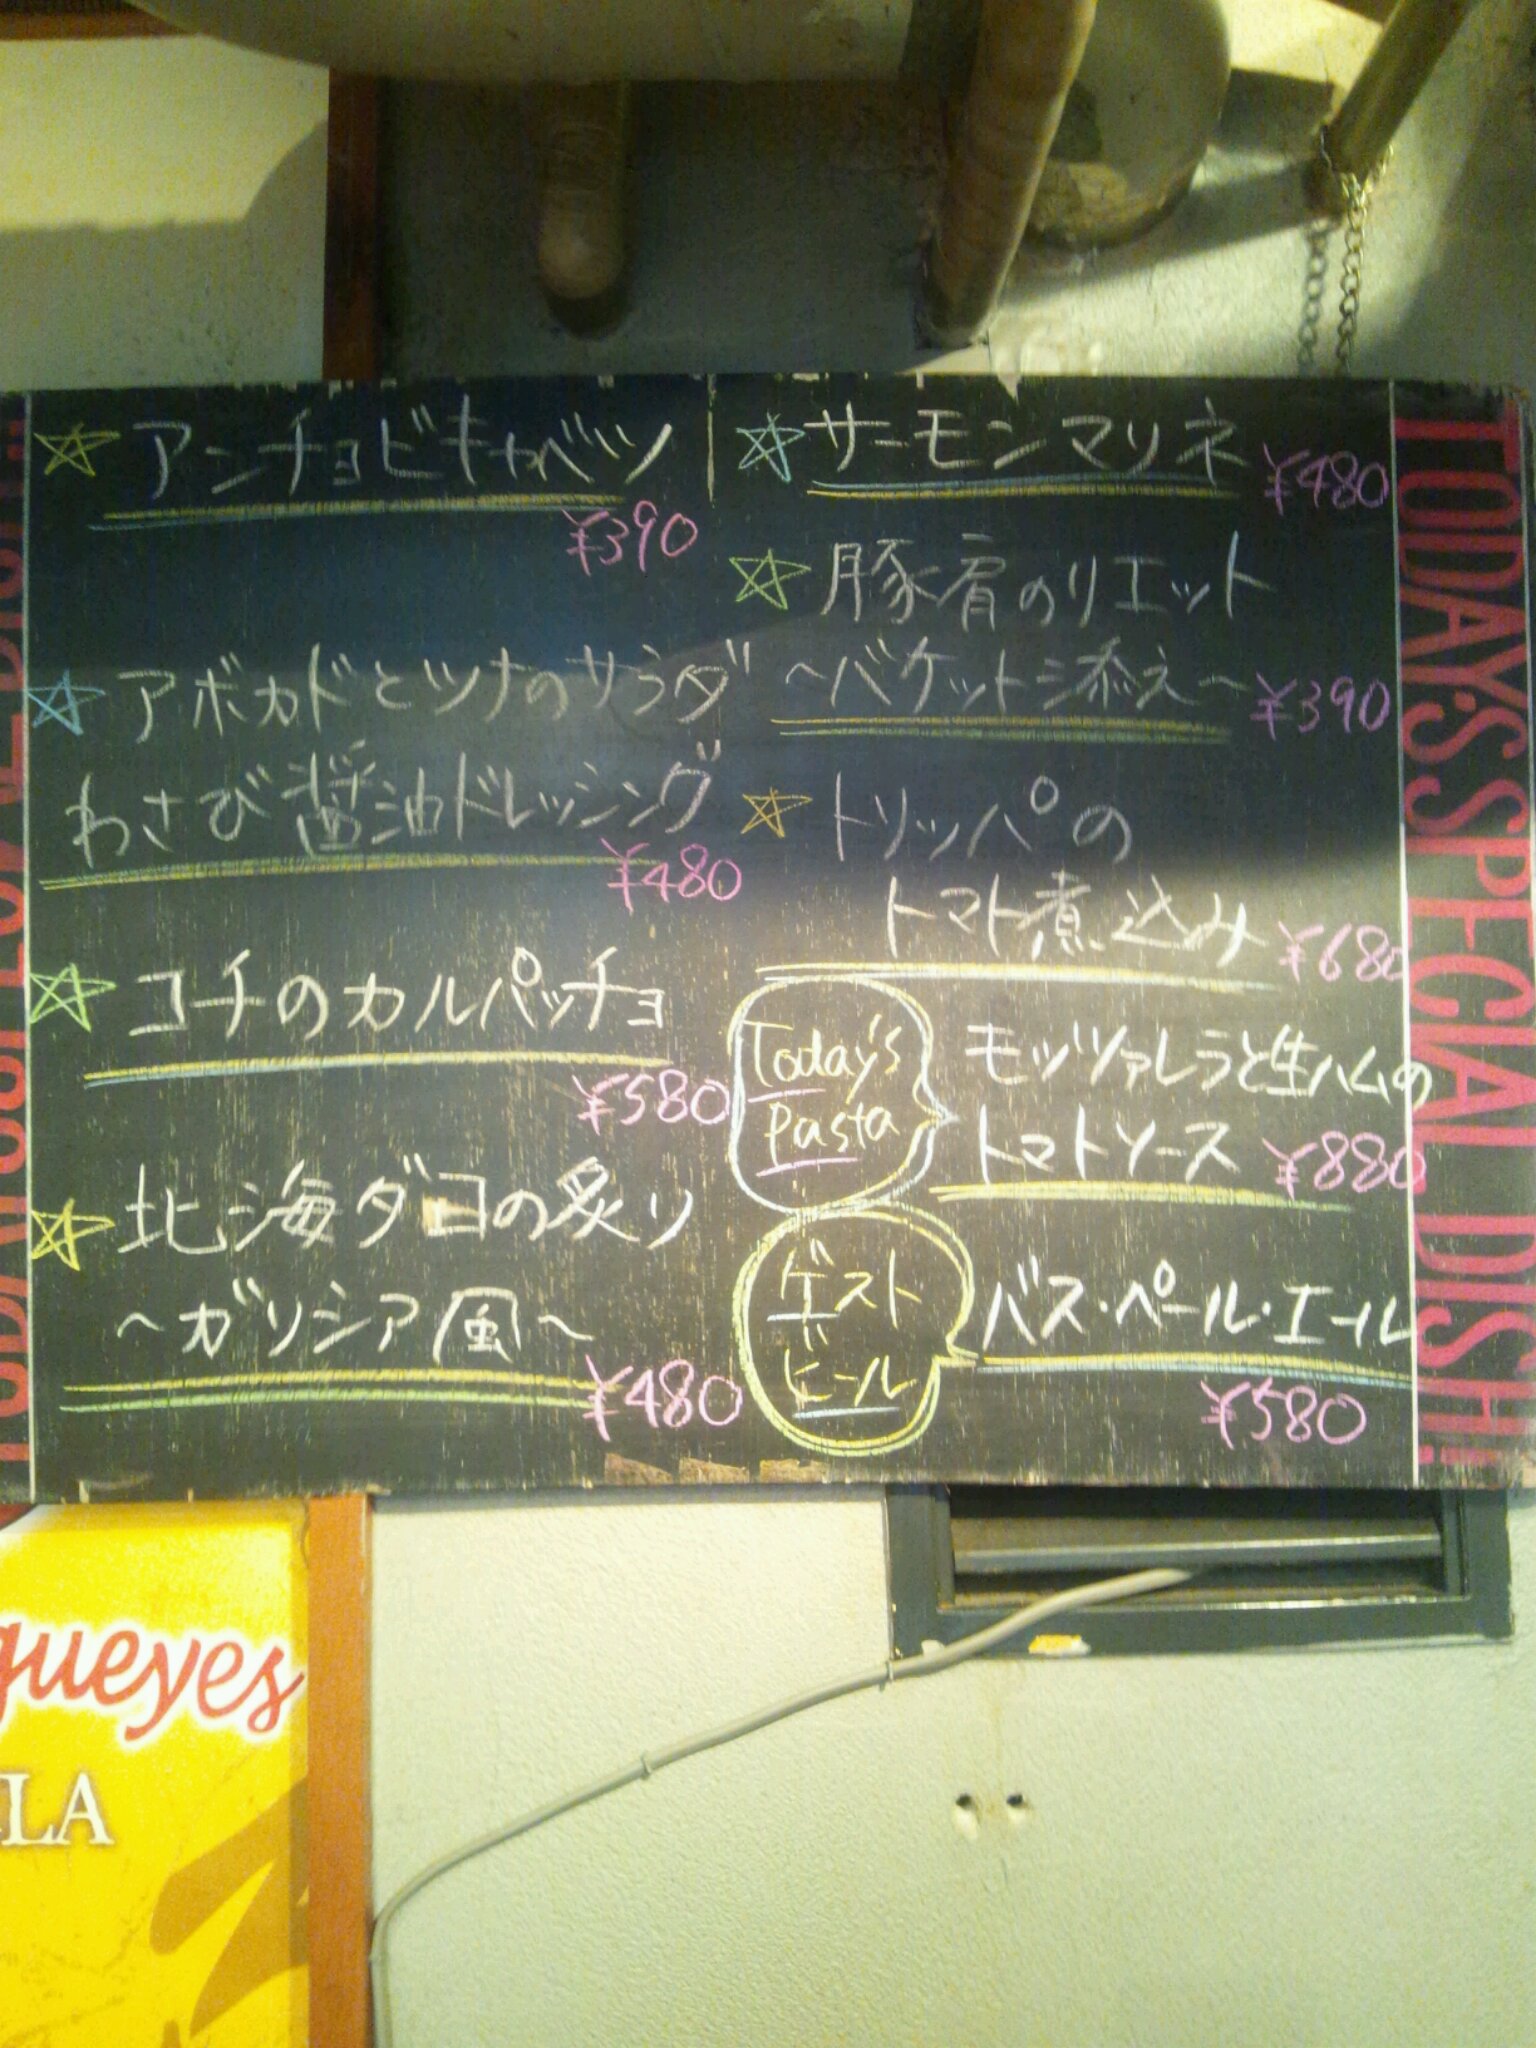 ☆アンチョビキャベツ
¥390
☆アボカドとツナのサラダ
わさび醤油ドレッシング
¥480
☆コチのカルパッチョ
¥580
☆北海ダコの炙り
～ガリシア風～
¥480
☆サーモンマリネ ¥480
☆豚肩のリエット
～バケット添え～ ¥390
☆トリッパの
トマト煮込み ¥680
Today's
Pasta
モッツァレラと生ハムの
トマトソース ¥880
ゲスト
ビール
バス・ペール・エール
¥580
TODAY'S SPECIAL DISH!
gueyes
LA